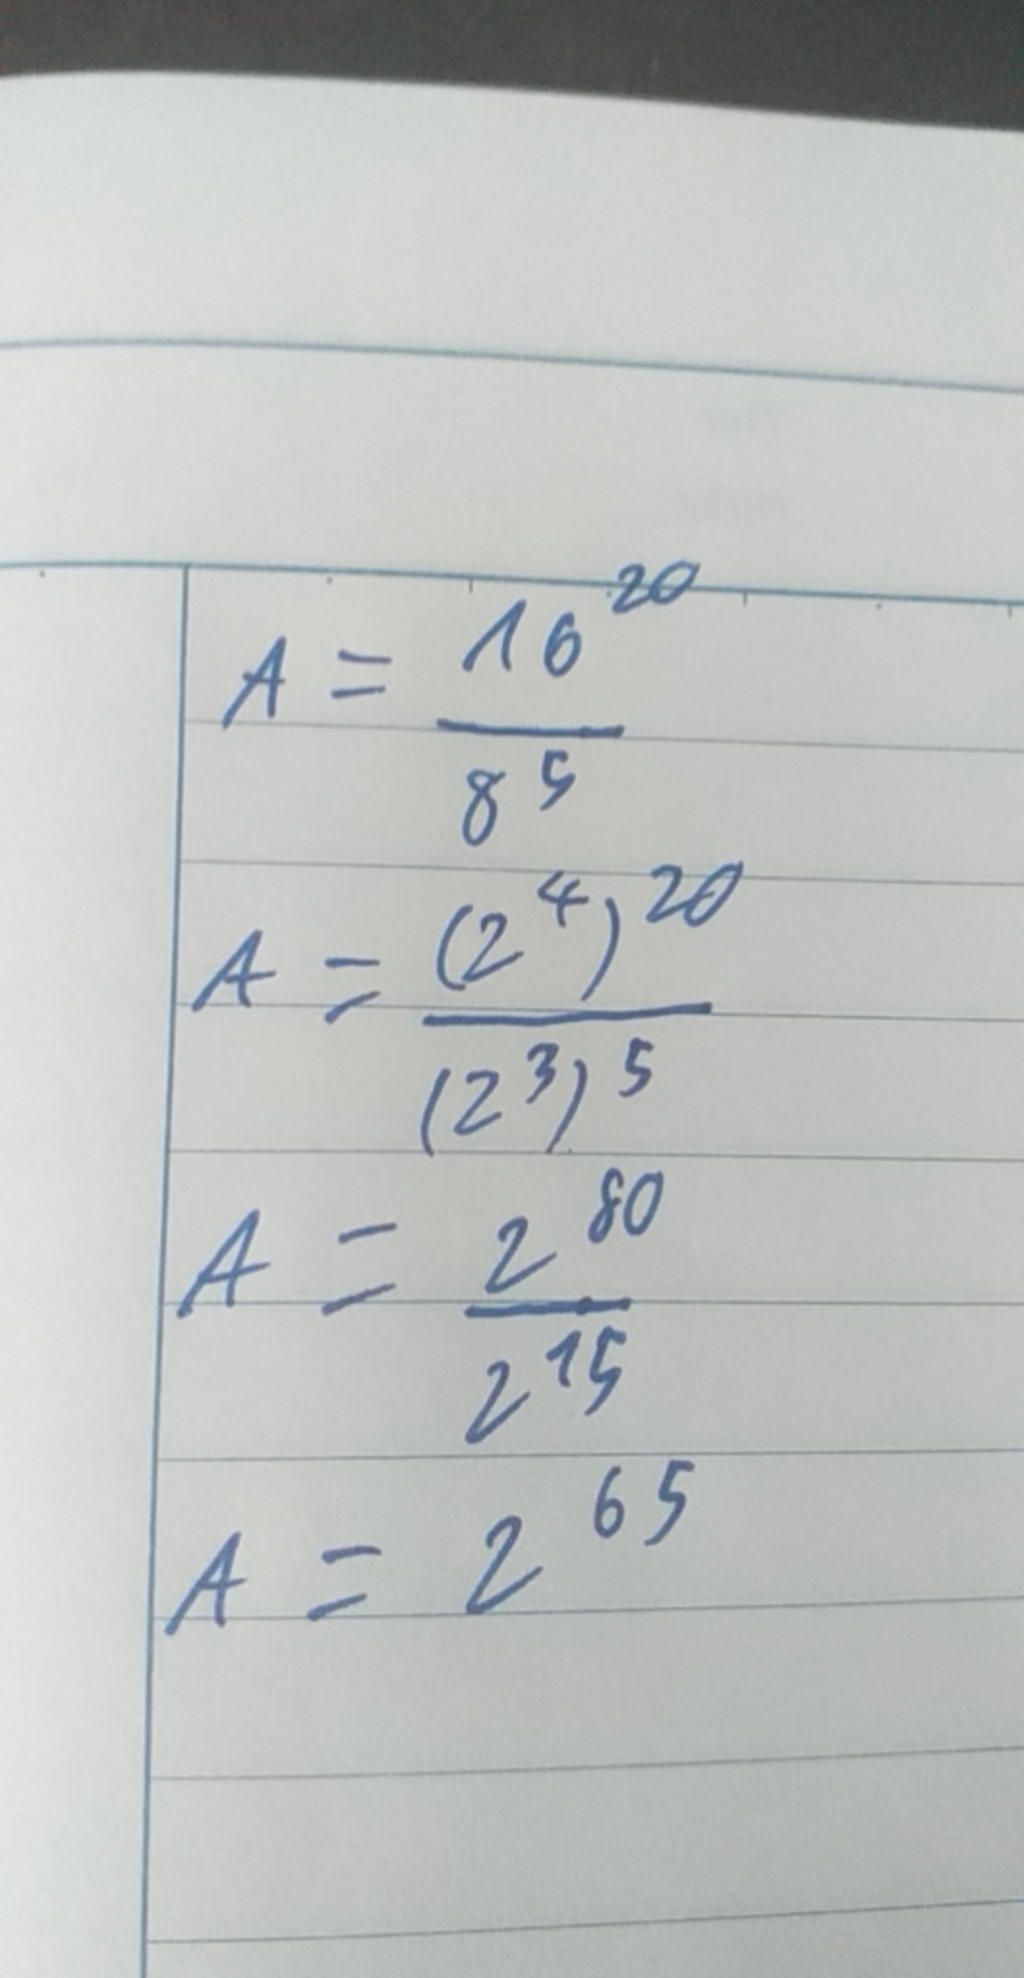 A = 16^20 / 8^5
A = (2^4)^20 / (2^3)^5
A = 2^80 / 2^15
A = 2^65